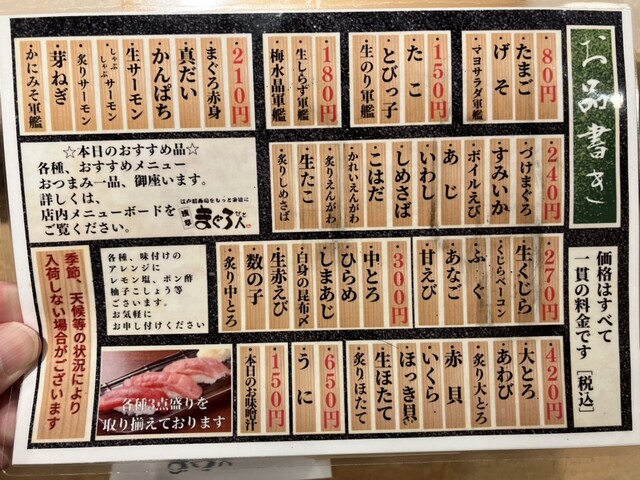 お品書き
価格はすべて
一貫の料金です [税込]
・80円・
・たまご
・げそ
・マヨサラダ軍艦
・150円・
・たこ
・とびっ子
・生のり軍艦
・180円・
・生しらす軍艦
・梅水晶軍艦
・210円・
・まぐろ赤身
・真だい
・かんぱち
・生サーモン
・しゃぶしゃぶサーモン
・炙りサーモン
・芽ねぎ
・かにみそ軍艦
・240円・
・づけまぐろ
・すみいか
・ボイルえび
・あじ
・いわし
・しめさば
・こはだ
・かれいえんがわ
・炙りえんがわ
・生たこ
・炙りしめさば
☆本日のおすすめ品☆
各種、おすすめメニュー
おつまみ一品、御座います。
詳しくは、
店内メニューボードを
ご覧ください。
江戸前寿司をもっと身近に
浅草
まぐろ人
・270円・
・生くじら
・くじらベーコン
・ふぐ
・あなご
・甘えび
・300円・
・中とろ
・ひらめ
・しまあじ
・白身の昆布〆
・生赤えび
・数の子
・炙り中とろ
・420円・
・大とろ
・あわび
・炙り大とろ
・赤貝
・いくら
・ほっき貝
・生ほたて
・炙りほたて
・650円・
・うに
・150円・
・本日のお味噌汁
各種、味付けの
アレンジに
レモン塩、ポン酢
柚子こしょう等
ございます。
お気軽に
お申し付けください
各種3点盛りを
取り揃えております
季節、天候等の状況により
入荷しない場合がございます